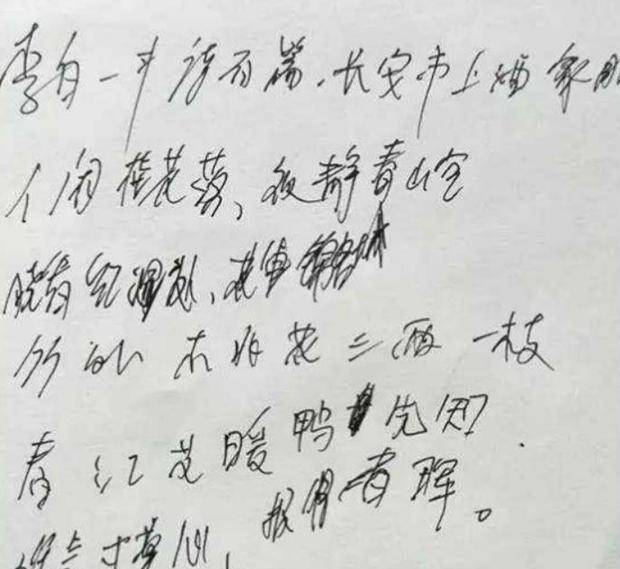 李白一斗诗百篇.长安市上酒家眠
人闲桂花落、夜静春山空
晓看红湿处、花重锦官城
竹外 木非花三两一枝
春江水暖鸭先知.
谁言寸草心,报得春晖。